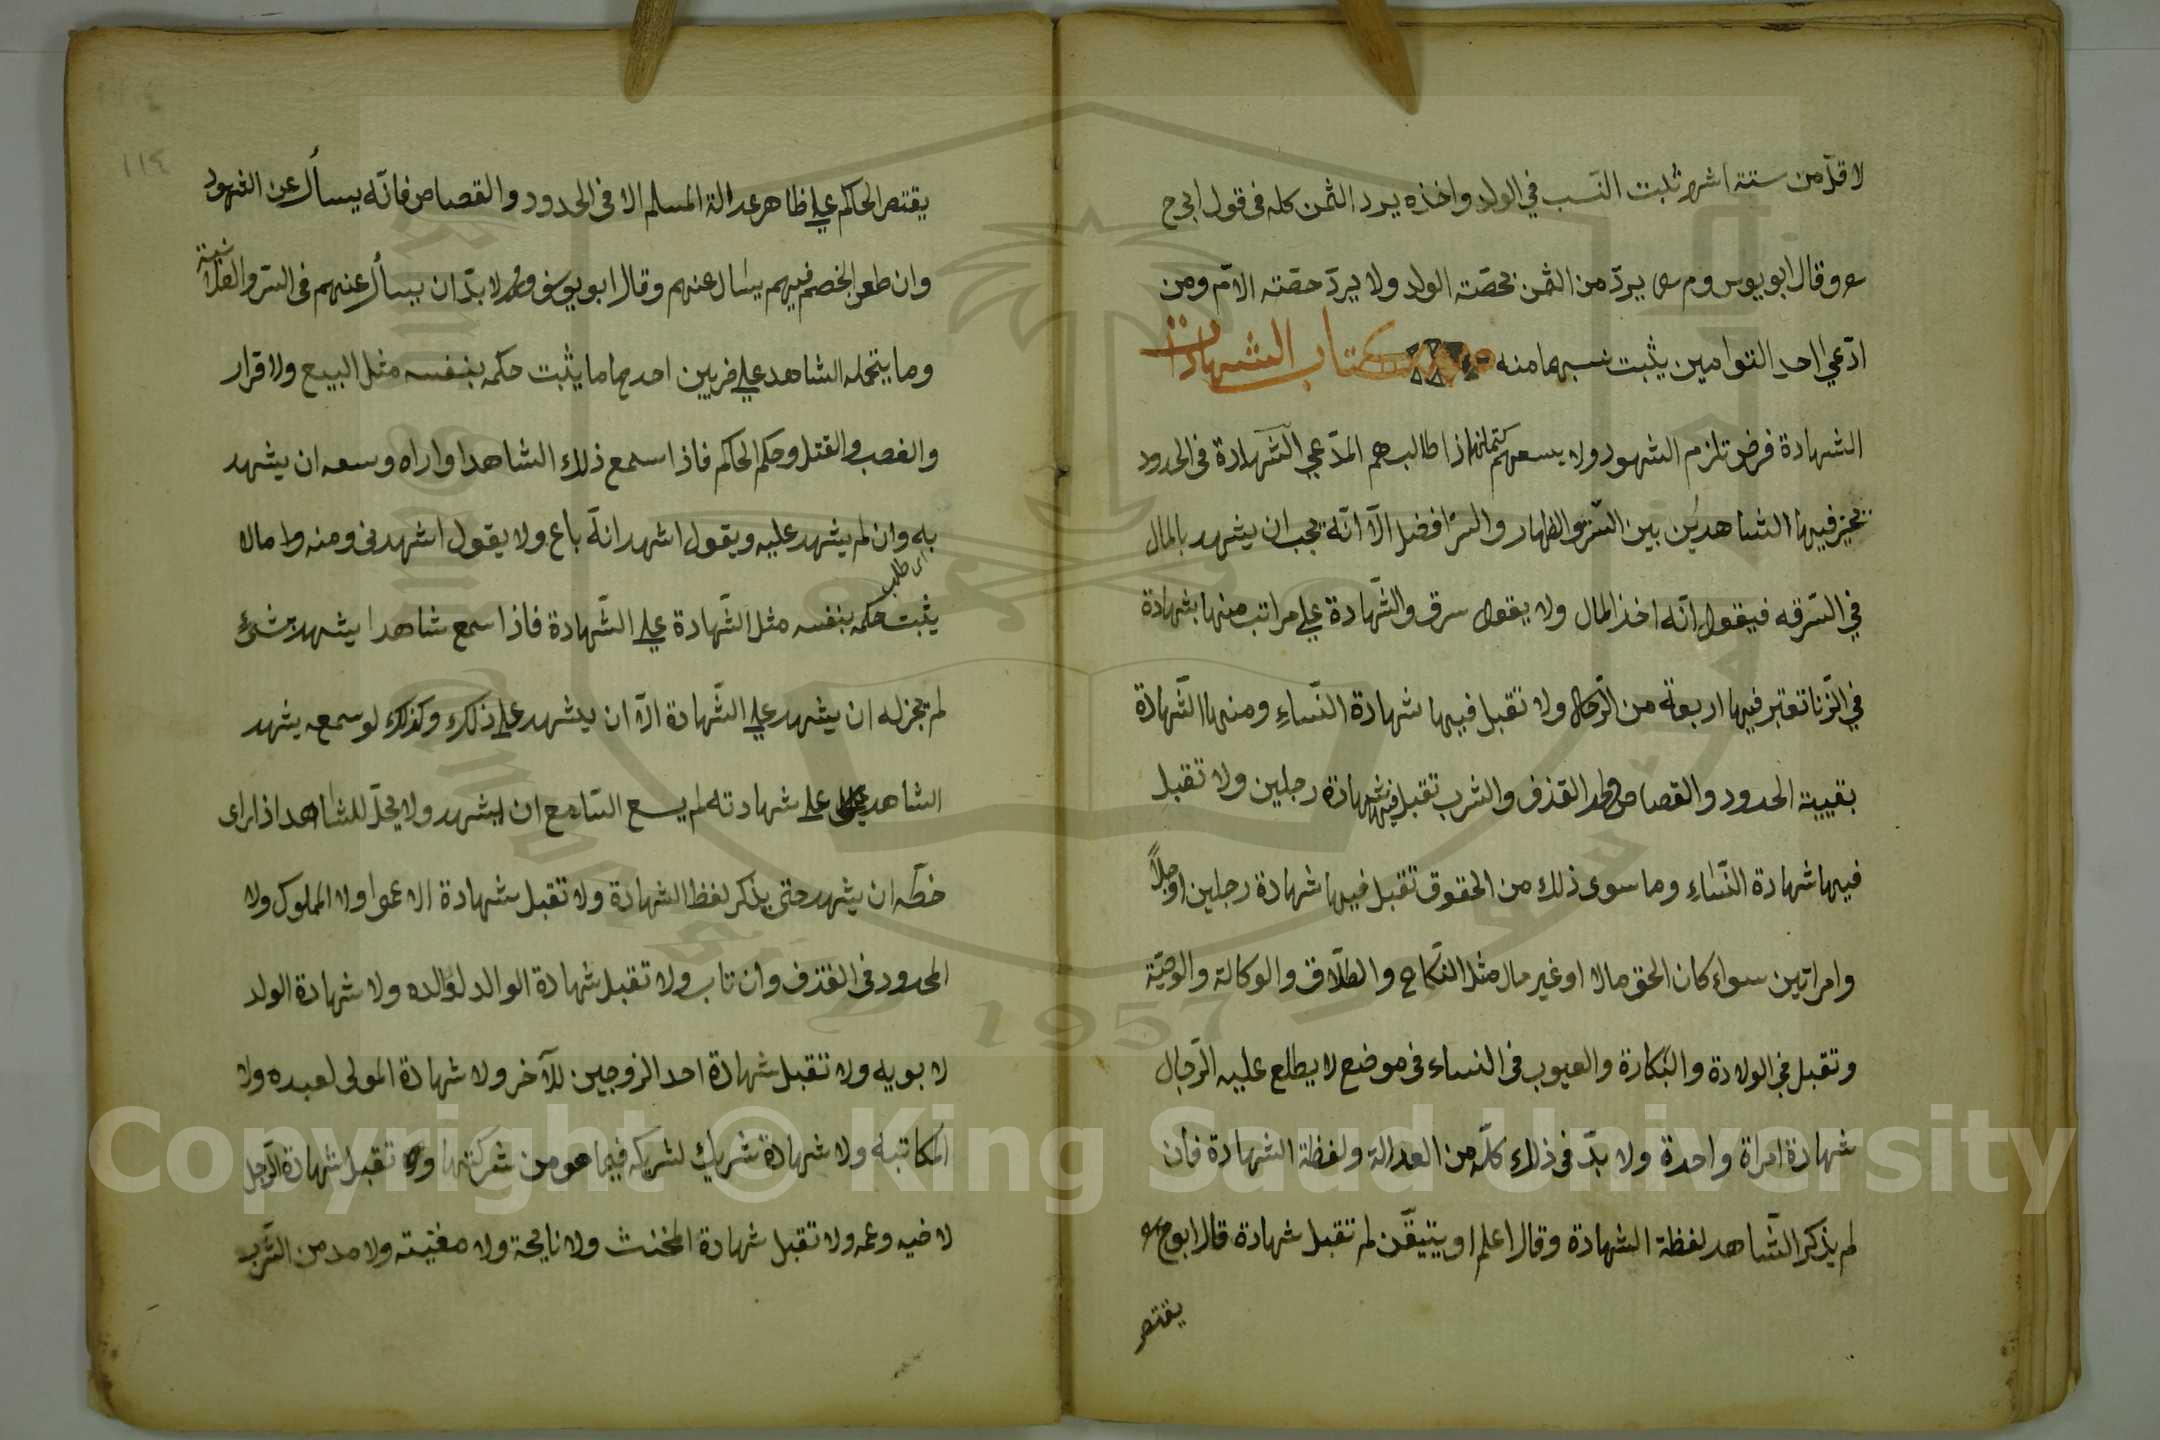 لاقلّ من ستة اشهر ثبت النّسب في الولد واخذه يرد الثمن كله فى قول ابي ح
وقال ابو يوس وم يردّ من الثمن بحصّته الولد ولا يردّ حصّته الامّ ومن
ادّعي احد التوامين يثبت نسبهما منه كتاب الشهادات
الشهادة فرض تلزم الشهود ولا يسعهم كتمانها اذا طالبهم المدّعي الشّهادة فى الحدود
يخيّر فيها الشاهدين بين السّتر والظهار والسّتر افضل الّا انّه يجب ان يشهد بالمال
في السّرقه فيقول انّه اخذ المال ولا يقول سرق والشّهادة علي مراتب منها شهادة
في الزّنا تعتبر فيها اربعة من الرّجال ولا تقبل فيها شهادة النّساءِ ومنها الشّهادة
بقيية الحدود والقصاص وحد القذف والشرب تقبل فيها شهادة رجلين ولا تقبل
فيها شهادة النّساءِ وما سوى ذلك من الحقوق تقبل فيها شهادة رجلين او رجلاً
وامراتين سواء كان الحق مالا او غير مال مثل النّكاح والطّلاق والوكالة والوصيّة
وتقبل في الولادة والبّكارة والعيوب فى النساء فى موضع لا يطلع عليه الرّجال
شهادة امراة واحدة ولا بدّ فى ذلك كلّه من العدالة ولفظة الشهادة فان
لم يذكر الشّاهد لفظة الشهادة وقال اعلم او يتيقّن لم تقبل شهادة قال ابو ح
يقتصر
١١٤
يقتصر الحاكم علي ظاهر عدالة المسلم الا فى الحدود والقصاص فانّه يسأل عن الشهود
وان طعن الخصم فيهم يسال عنهم وقال ابو يوسف ومحمد لا بدّ ان يسأل عنهم فى السّر والعلانية
وما يتحمله الشاهد علي ضربين احدهما ما يثبت حكمه بنفسه مثل البيع ولاقرار
والغصب والقتل وحكم الحاكم فاذا سمع ذلك الشاهد او اراه وسعه ان يشهد
به وان لم يشهد عليه ويقول اشهد انّه باع ولا يقول اشهدنى ومنه وا مالا
اى طلب
يثبت حكمه بنفسه مثل الشّهادة علي الشّهادة فاذا سمع شاهدا يشهد بشئ
لم يجز له ان يشهد علي الشّهادة الّا ان يشهد علي ذلك وكذلك لو سمعه يشهد
الشاهد علي شهادته لم يسع السّامع ان يشهد ولا يحلّ للشاهد اذا راى
خطّه ان يشهد حتى يذكر لفظ الشهادة ولا تقبل شهادة الاعموا ولا المملوك ولا
المحدود فى القذف وان تاب ولا تقبل شهادة الوالد لوالده ولا شهادة الولد
لابويه ولا تقبل شهادة احد الزوجين للآخر ولا شهادة المولى لعبده ولا
المكاتبه ولا شهادة شريك لشريكه فيما هو من شركتها ولا تقبل شهادة الرّجل
لاخيه وعمه ولا تقبل شهادة المخنث ولا نايحة ولا مغنيته ولا مدمن الشّرب
Copyright © King Saud University
1957